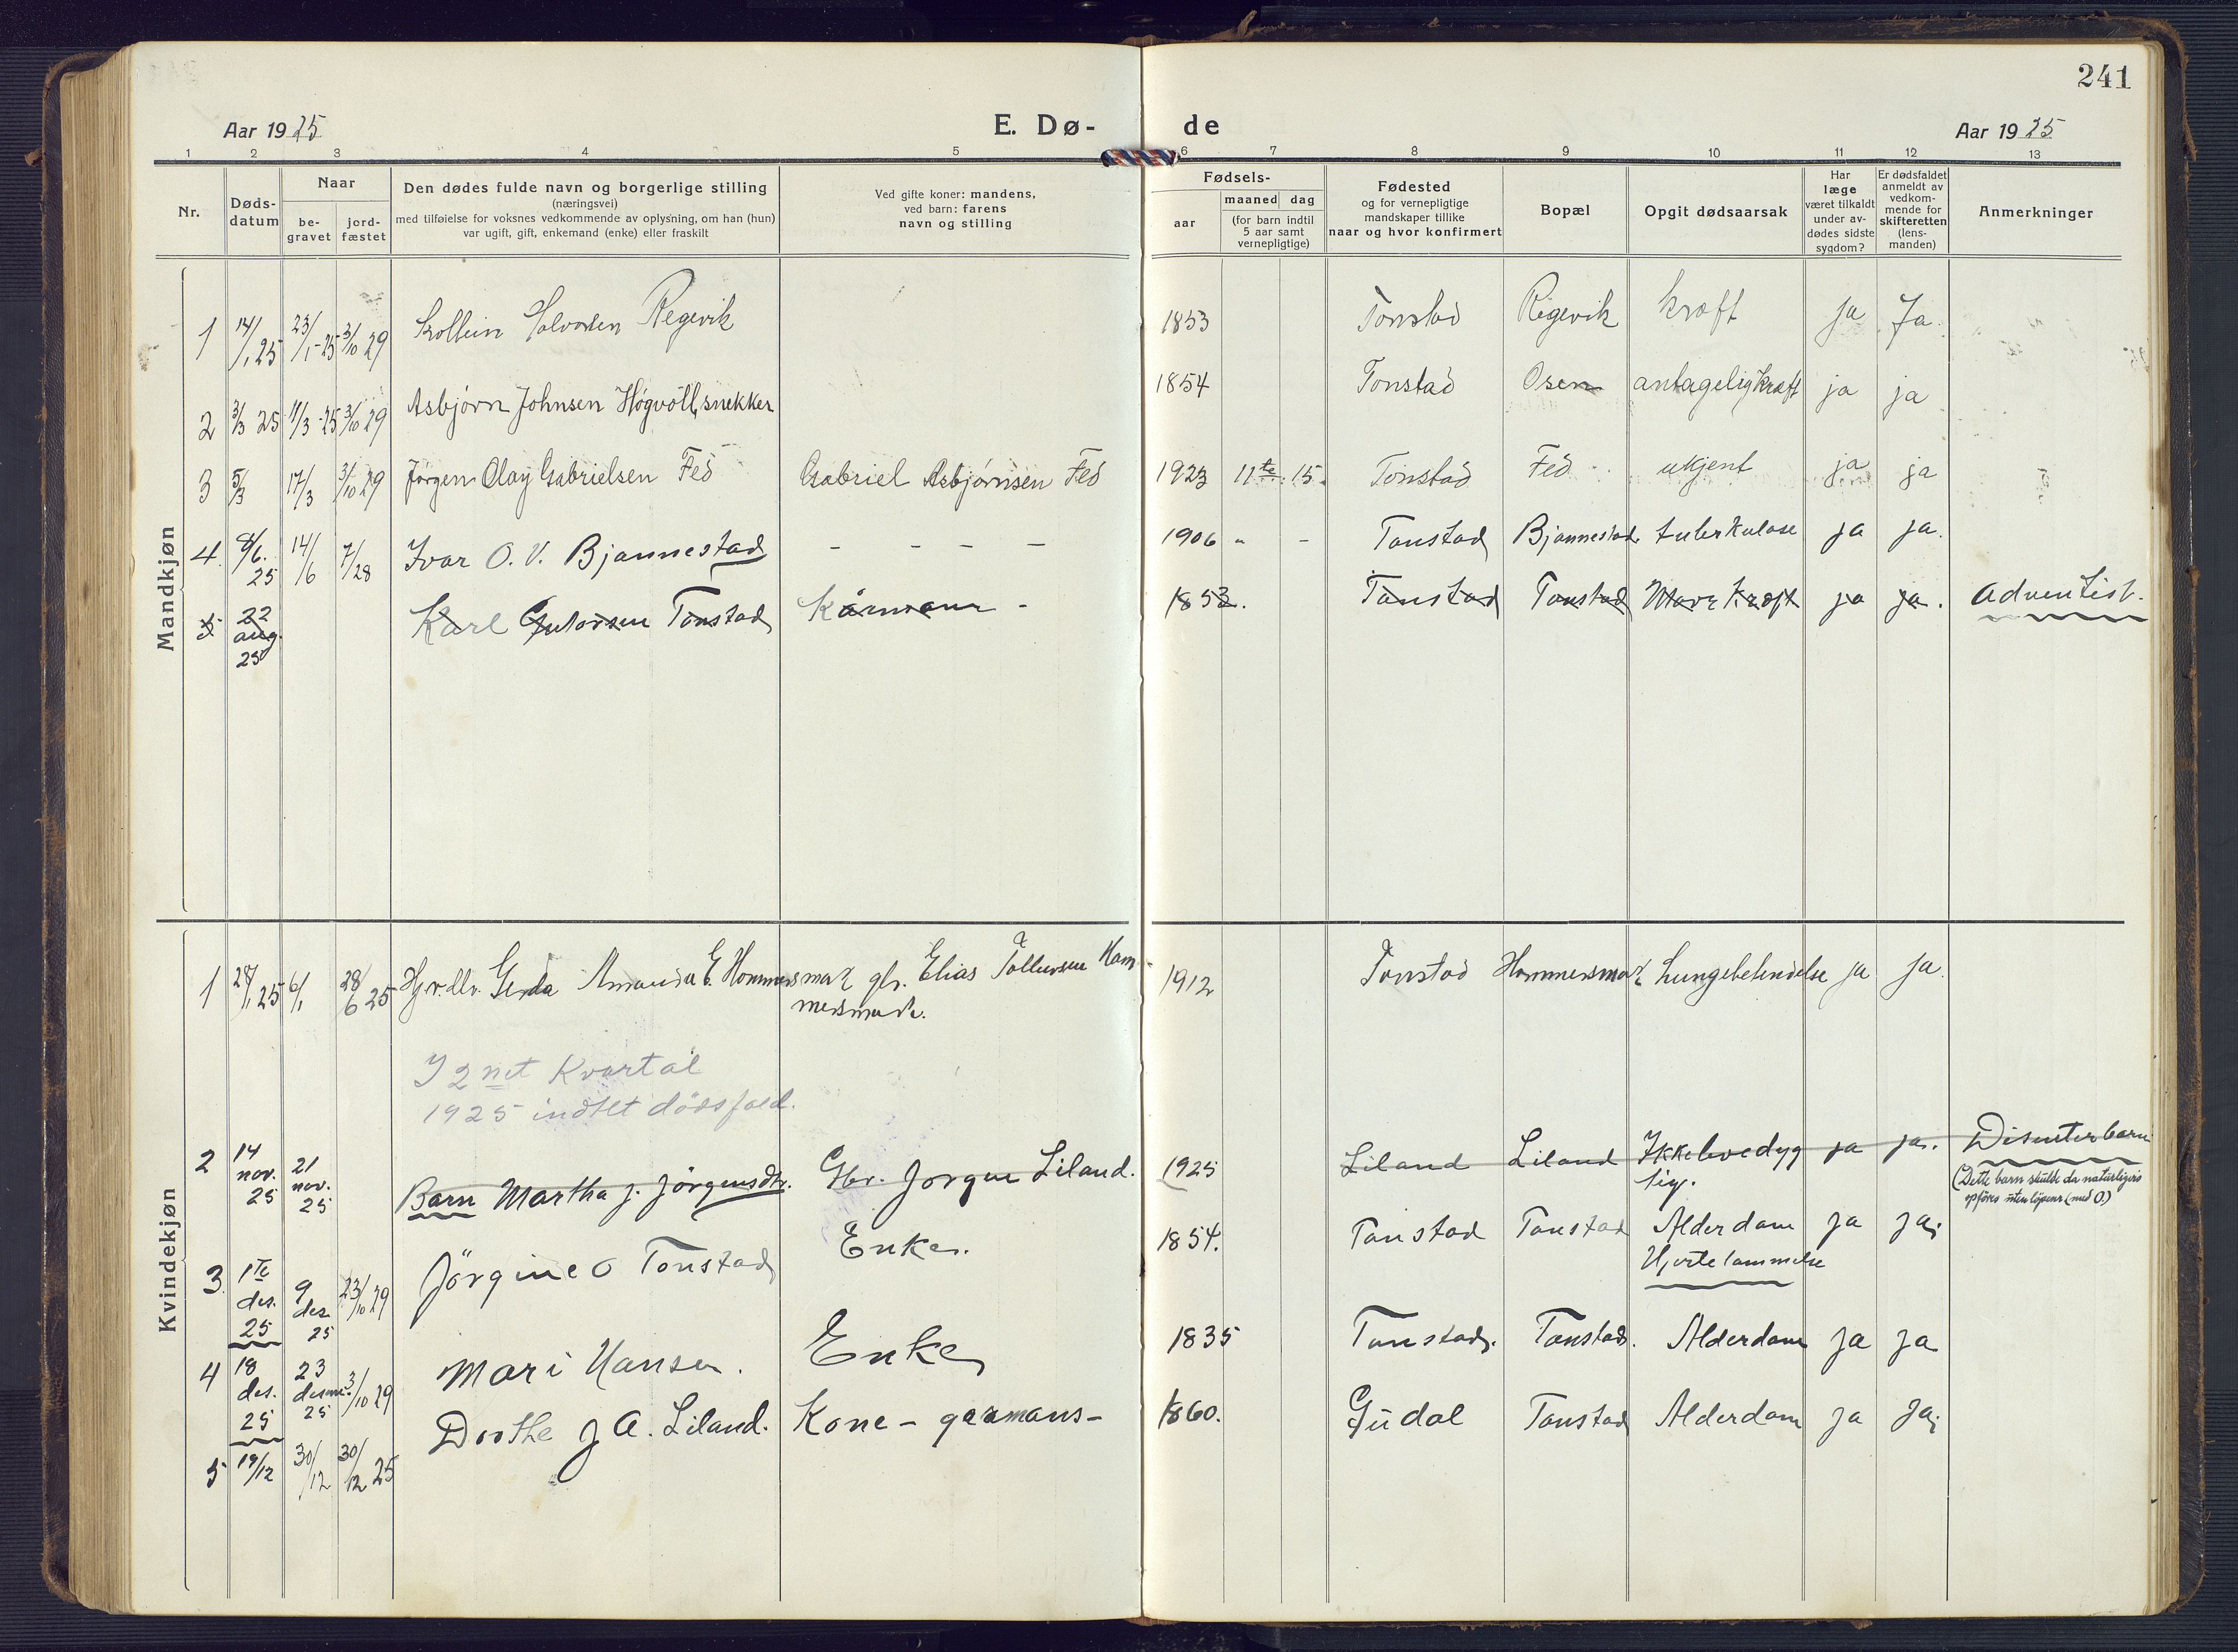 241
Aar 1925 E. Dø- de Aar 1925
1 2 3 4 5 6 7 8 9 10 11 12 13
Nr.
Døds-
datum
Naar
be-
gravet
jord-
fæstet
Den dødes fulde navn og borgerlige stilling
(næringsvei)
med tilføielse for voksnes vedkommende av oplysning, om han (hun)
var ugift, gift, enkemand (enke) eller fraskilt
Ved gifte koner: mandens,
ved barn: farens
navn og stilling
Fødsels-
aar
maaned dag
(for barn indtil
5 aar samt
vernepligtige)
Fødested
og for vernepligtige
mandskaper tillike
naar og hvor konfirmert
Bopæl
Opgit dødsaarsak
Har
læge
været tilkaldt
under av-
dødes sidste
sygdom?
Er dødsfaldet
anmeldt av
vedkom-
mende for
skifteretten
(lens-
manden)
Anmerkninger
Mandkjøn
1 14/1 25 23/1-25 3/10 29 Salvosen Regevik 1853 Tonstad Regevik kræft ja Ja
2 3/3 25 11/3-25 3/10 29 Asbjørn Johnsen Høgvoll, snekker 1854 Tonstad Osen antagelig kræft ja ja
3 5/3 17/3 3/10 29 Jørgen Olay Gabrielsen Fed Gabriel Asbjørnsen Fed 1923 11te 15. Tonstad Fed ukjent ja ja
4. 8/6. 25 14/6 7/28 Ivar O. V. Bjannestad - - - - 1906 " - Tonstad Bjannestad tuberkulose ja ja.
5 22 aug. 25 Karl Tonstad Kårmann - 1853. Tonstad Tonstad Mave kræft ja ja. Adventist.
Kvindekjøn
1 28/6 25 Gerda Amanda E. Hommersmark gbr. Elias Tollevsen Hom-
mersmark. 1912 Tonstad Hommersmark Lungebetendelse ja ja
I 2net Kvartal
1925 indtet dødsfald.
2 14 nov. 25 21 nov. 25 Barn Martha J. Jørgensdtr. Gbr. Jørgen Liland. 1925 Liland Liland Ikke levedyg
tig. ja ja. Disenterbarn
(Dette barn skulde da naturligvis
opføres uten løpenr (med 0.)
3. 1te des. 25 9 des. 25 23/10 29 Jørgine O Tonstad Enke. 1854. Tonstad Tonstad Alderdom
Hjertelammelse ja ja
4 18 des. 25 23 25 3/10 29 Mari Hansen. Enke 1835 Tonstad. Tonstad. Alderdom ja ja
5 19/12 30/12 30/12 25 Dorthe J A. Liland. Kone - 1860. Gudal Tonstad Alderdom ja ja